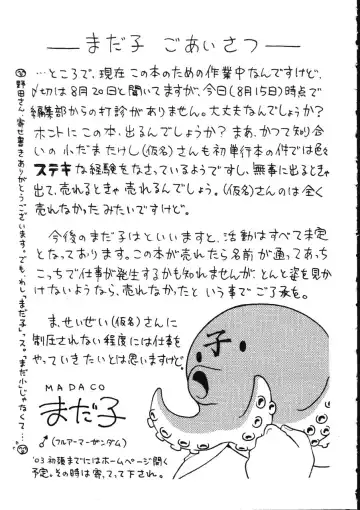 まだ子 ごあいさつ
…ところで、現在この本のための作業中なんですけど、
〆切は8月20日と聞いていますが、今日(8月15日)時点で
編集部からの打診がありません。大丈夫なんでしょうか？
ホントにこの本、出るんでしょうか？まあ、かつて知り合
いの小だまたけし(仮名)さんも初単行本の件では色々
ステキな経験をなさっているようですし、無事に出るときゃ
出て、売れるときゃ売れるんでしょう。(仮名)さんのは全く
売れなかったみたいですけど。
今後のまだ子はといいますと、活動はすべて未定
となっております。この本が売れたら名前が通ってあっち
こっちで仕事が発生するかも知れませんが、とんと姿を見か
けないようなら、売れなかったという事でご了承を。
ま、せいぜい(仮名)さんに
制圧されない程度には仕事を
やっていきたいとは思いますけど。
子
MADACO
まだ子
♂(フルアーマーガンダム)
'03初春までにはホームページ開く
予定。その時は寄ってって下され。
野田さん、寄せ書きありがとうございます。でも、わし「まだ子」って。「まだ小」じゃなくて…。